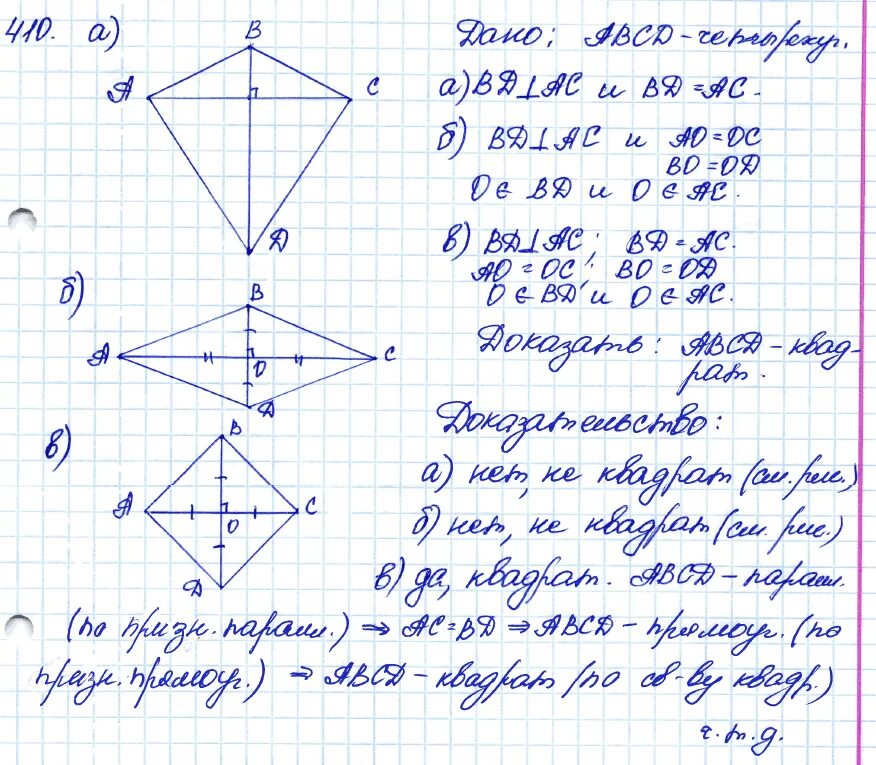 410. а)
B
A
C
D
Дано: ABCD - четырехуг.
а) BD⊥AC и BD = AC.
б) BD⊥AC и AO = OC
BO = OD
O ∈ BD и O ∈ AC.
в) BD⊥AC; BD = AC.
AO = OC; BO = OD
O ∈ BD и O ∈ AC.
б)
B
A
O
C
D
Доказать: ABCD - квад-
рат.
Доказательство:
в)
B
A
O
C
D
а) нет, не квадрат (см. рис.)
б) нет, не квадрат (см. рис.)
в) да, квадрат. ABCD - паралл.
(по призн. паралл.) ⇒ AC = BD ⇒ ABCD - прямоуг. (по
призн. прямоуг.) ⇒ ABCD - квадрат (по св-ву квадр.)
ч.т.д.